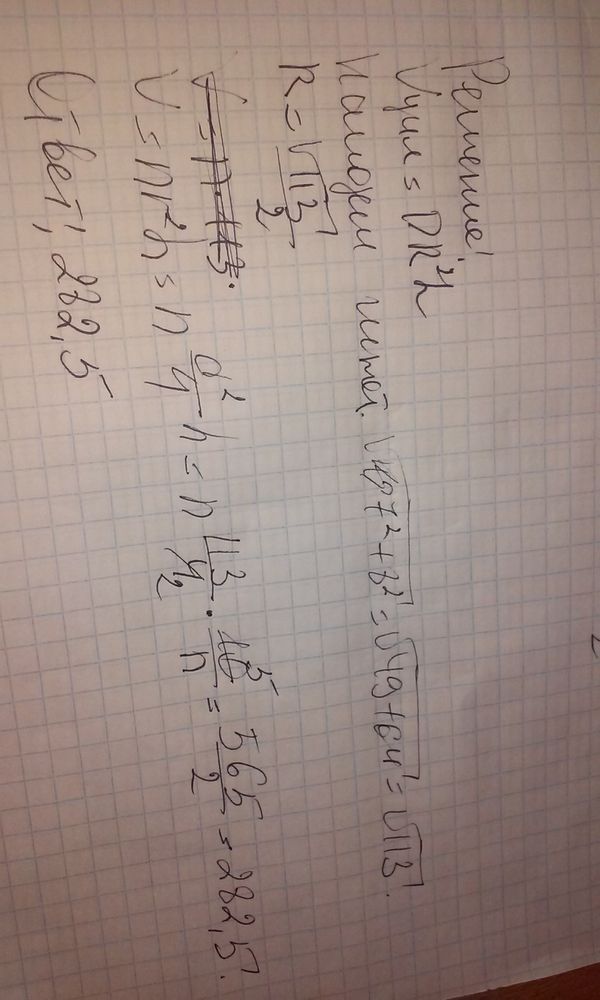 Решение!
Vцил = ПR²h
Находим гипот. √7²+8² = √49+64 = √113.
R = √113/2
V = π · 113.
V = πr²h = π d²/4 h = π 113/4 2 · 10 5/π = 565/2 = 282,5.
Ответ; 282,5